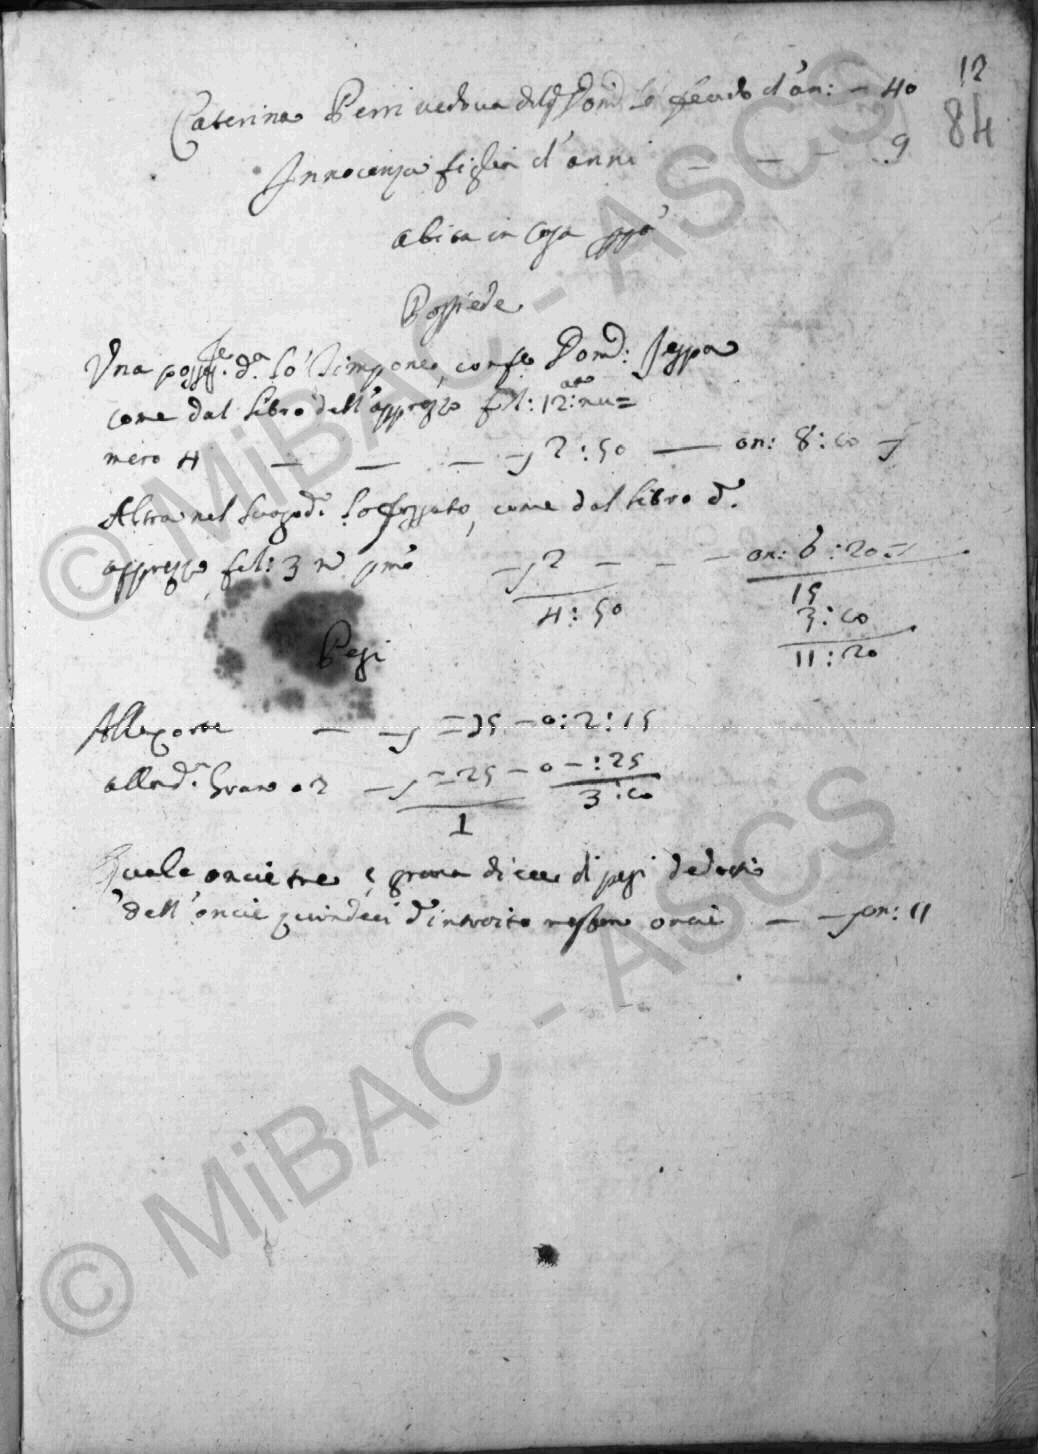 12
84
Caterina Perri vedova del q Dom: Lo feudo d'an: — 40
Innocenza figlia d'anni — — — 9
abita in casa ppa
Possiede
Una posse. da. lo Timpone, confe Dom: Seppa
come dal libro dell'apprezzo fol: 12: ao nu=
mero 4 — — — 2:50 — on: 8:10
Altra nel luogo d. Lo fossato, come dal libro d.
apprezzo fol: 3 no pmo — 2 — — — on: 6:20
4:50
15
3:10
11:20
Pesi
Alla Corte — — =75 — o:2:15
alla d. Grano 2 — =25 — o — :25
1
3:10
Quale oncie tre e grana diece di pesi dedotti
dell'oncie quindeci d'introito restano oncie — — on: 11
© MiBAC - ASCS
© MiBAC - ASCS